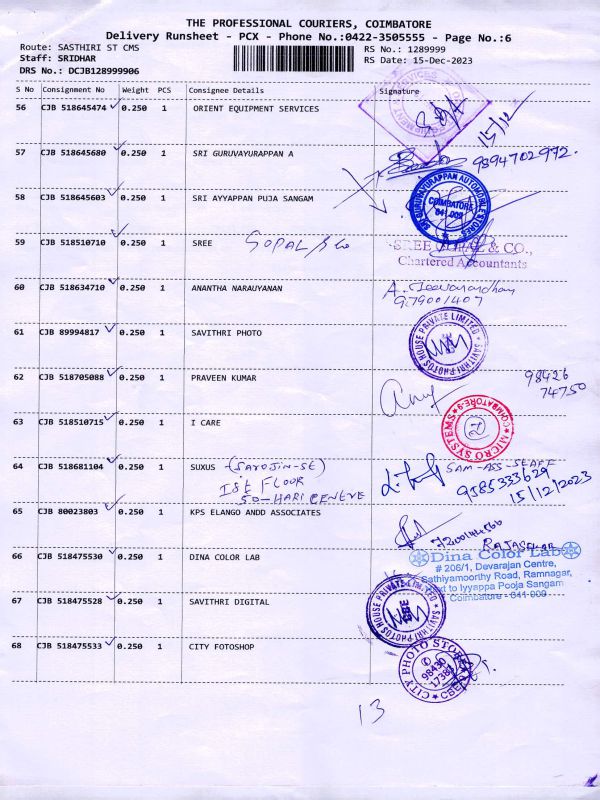 THE PROFESSIONAL COURIERS, COIMBATORE
Delivery Runsheet - PCX - Phone No.:0422-3505555 - Page No.:6
Route: SASTHIRI ST CMS
RS No.: 1289999
Staff: SRIDHAR
RS Date: 15-Dec-2023
DRS No.: DCJB128999906
S No Consignment No Weight PCS Consignee Details Signature
56 CJB 518645474 0.250 1 ORIENT EQUIPMENT SERVICES
15/12
57 CJB 518645680 0.250 1 SRI GURUVAYURAPPAN A
9894702972.
58 CJB 518645603 0.250 1 SRI AYYAPPAN PUJA SANGAM
SRI GURUVAYURAPPAN AUTOMOBILE STORES
COIMBATORE
641 009
59 CJB 518510710 0.250 1 SREE GOPAL & Co
SREE GOPAL & CO.,
Chartered Accountants
60 CJB 518634710 0.250 1 ANANTHA NARAUYANAN
A. Jeevanandham
979001407
61 CJB 89994817 0.250 1 SAVITHRI PHOTO
SAVITHRI PHOTOS HOUSE PRIVATE LIMITED
62 CJB 518705088 0.250 1 PRAVEEN KUMAR
98426
74750
63 CJB 518510715 0.250 1 I CARE
MICRO SYSTEMS COIMBATORE-9
64 CJB 518681104 0.250 1 SUXUS (SAROJIN-SE)
SAM-ASS-STAFF
ISt FLOOR
9585333629
50-HARI CENTRE
15/12/2023
65 CJB 80023803 0.250 1 KPS ELANGO ANDD ASSOCIATES
RAJASEKAR
66 CJB 518475530 0.250 1 DINA COLOR LAB
Dina Color Lab
# 206/1, Devarajan Centre,
Sathiyamoorthy Road, Ramnagar,
Next to Iyyappa Pooja Sangam
Coimbatore - 641 009
67 CJB 518475528 0.250 1 SAVITHRI DIGITAL
SAVITHRI PHOTOS HOUSE PRIVATE LIMITED
68 CJB 518475533 0.250 1 CITY FOTOSHOP
CITY PHOTO STORE
98430
CBE
13